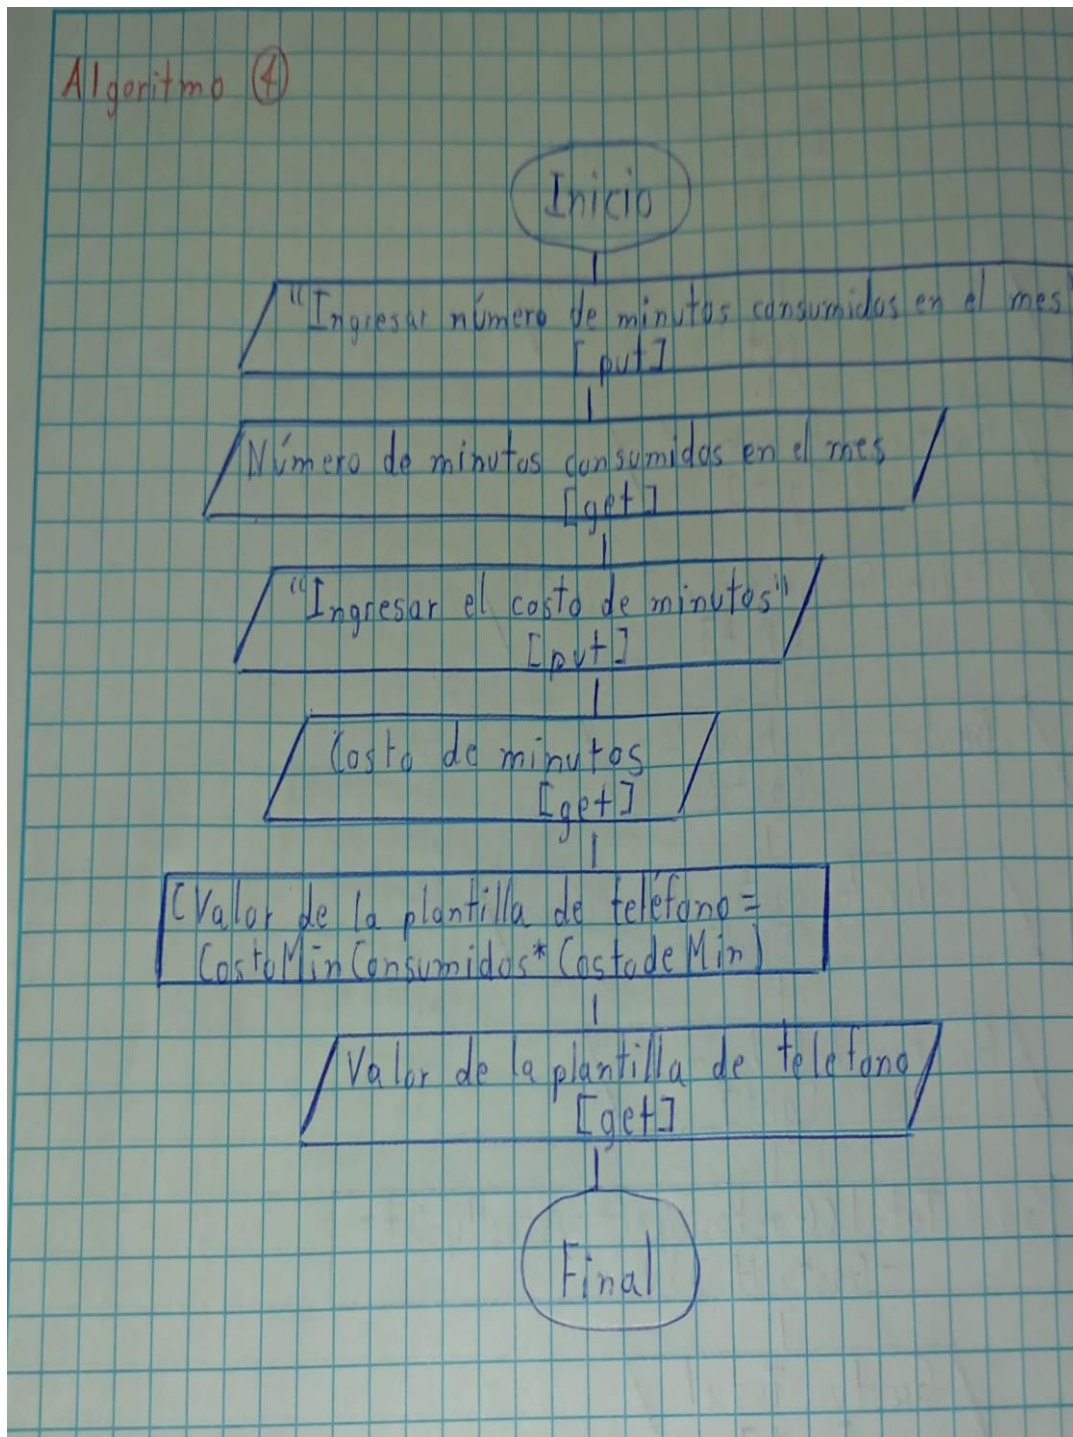 Algoritmo ④
Inicio
"Ingresar número de minutos consumidos en el mes"
[put]
Número de minutos consumidos en el mes
[get]
"Ingresar el costo de minutos"
[put]
Costo de minutos
[get]
(Valor de la plantilla de teléfono =
CostoMinConsumidos * CostodeMin)
Valor de la plantilla de telefono
[get]
Final